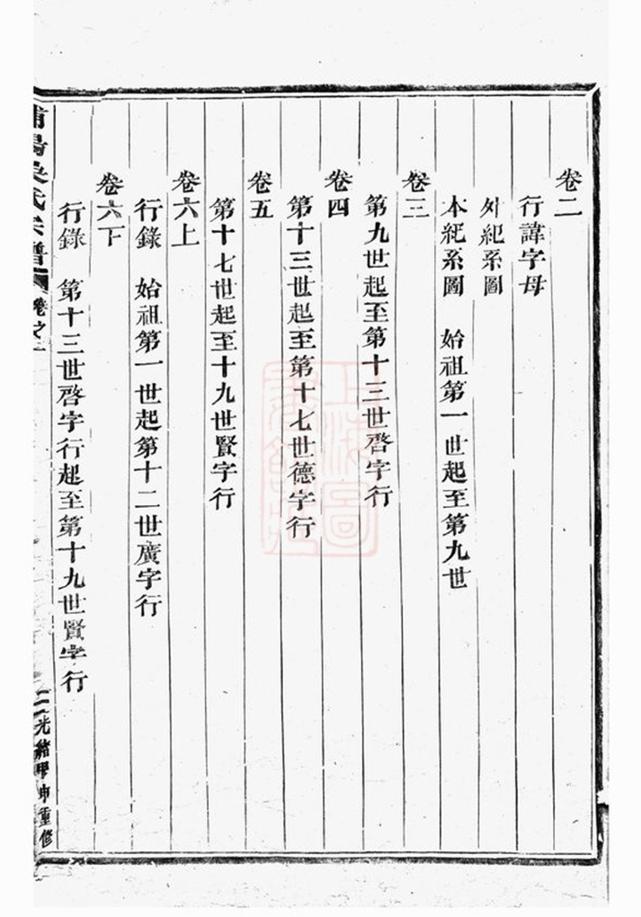 卷二
行諱字母
外紀系圖
本紀系圖 始祖第一世起至第九世
卷三
第九世起至第十三世啓字行
卷四
第十三世起至第十七世德字行
卷五
第十七世起至十九世賢字行
卷六上
行錄 始祖第一世起第十二世廣字行
卷六下
行錄 第十三世啓字行起至第十九世賢字行
浦陽吳氏宗譜 卷之一 二 光緒甲申重修